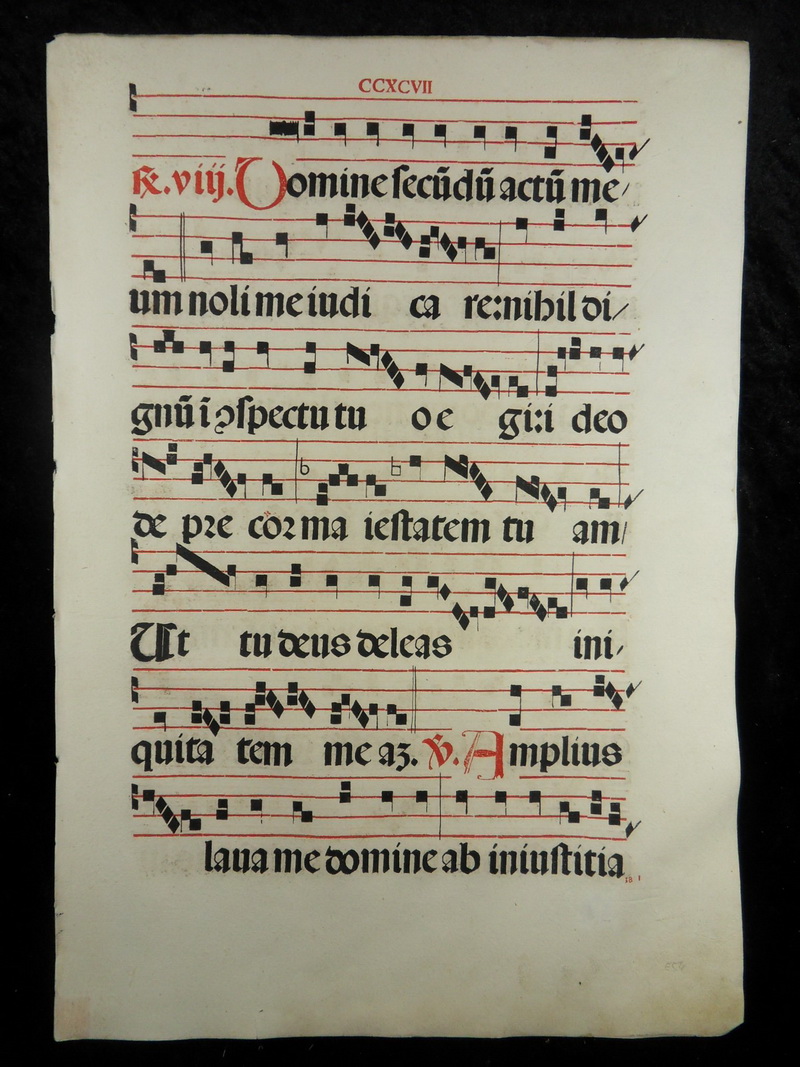 CCXCVII
℟.viij. Domine ſecũdũ actũ me/
um noli me iudi ca re:nihil di/
gnũ ĩ ꝯſpectu tu o e gi:i deo
de pꝛe coꝛ ma ieſtatem tu am/
Ut tu deus deleas ini/
quita tem me aꝫ. ℣. Amplius
laua me domine ab iniuſtitia